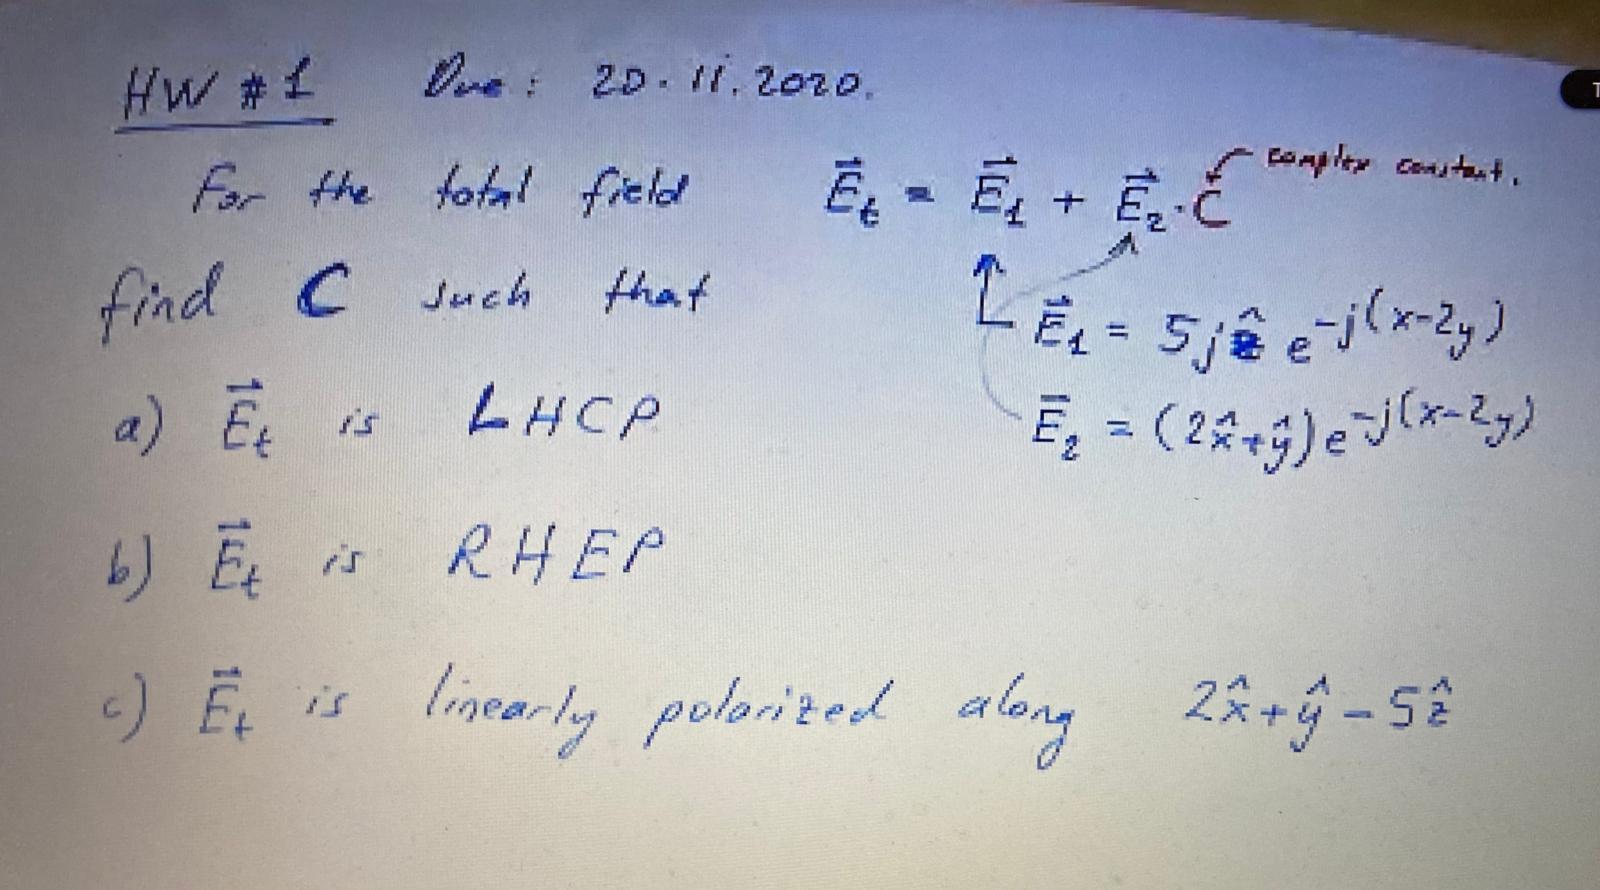 HW #1 Due: 20.11.2020.
For the total field E⃗t = E⃗1 + E⃗2·C complex constant.
find C such that E⃗1 = 5jẑ e^-j(x-2y)
a) E⃗t is LHCP E⃗2 = (2x̂+ŷ)e^-j(x-2y)
b) E⃗t is RHEP
c) E⃗t is linearly polarized along 2x̂+ŷ-5ẑ